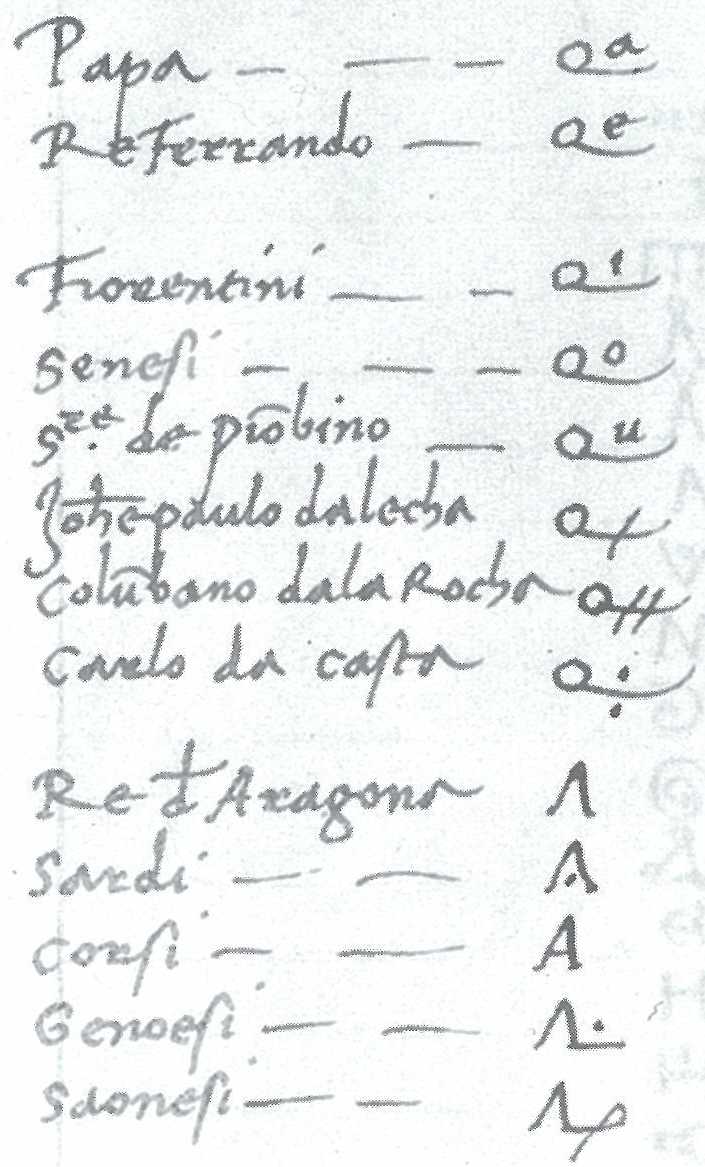 Papa — — — oᵃ
Re Ferrando — oᵉ
Fiorentini — — oⁱ
Senesi — — — oᵒ
Sʳᵉ de piōbino — oᵘ
paulo dalecha
Colūbano dala Rocha
Carlo da casta
Re d'Aragona Λ
Sardi — —
Corsi — — A
Genoesi — —
Saonesi — —